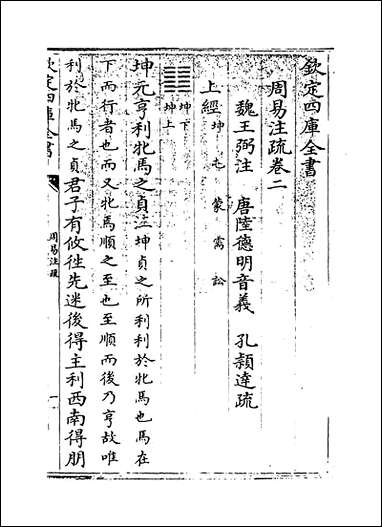 欽定四庫全書
周易注疏卷二
魏王弼注 唐陸德明音義 孔穎達疏
上經坤 屯 蒙 需 訟
坤下
坤上
坤元亨利牝馬之貞注坤貞之所利利於牝馬也馬在
下而行者也而又牝馬順之至也至順而後乃亨故唯
利於牝馬之貞君子有攸往先迷後得主利西南得朋
欽定四庫全書
周易注疏
一